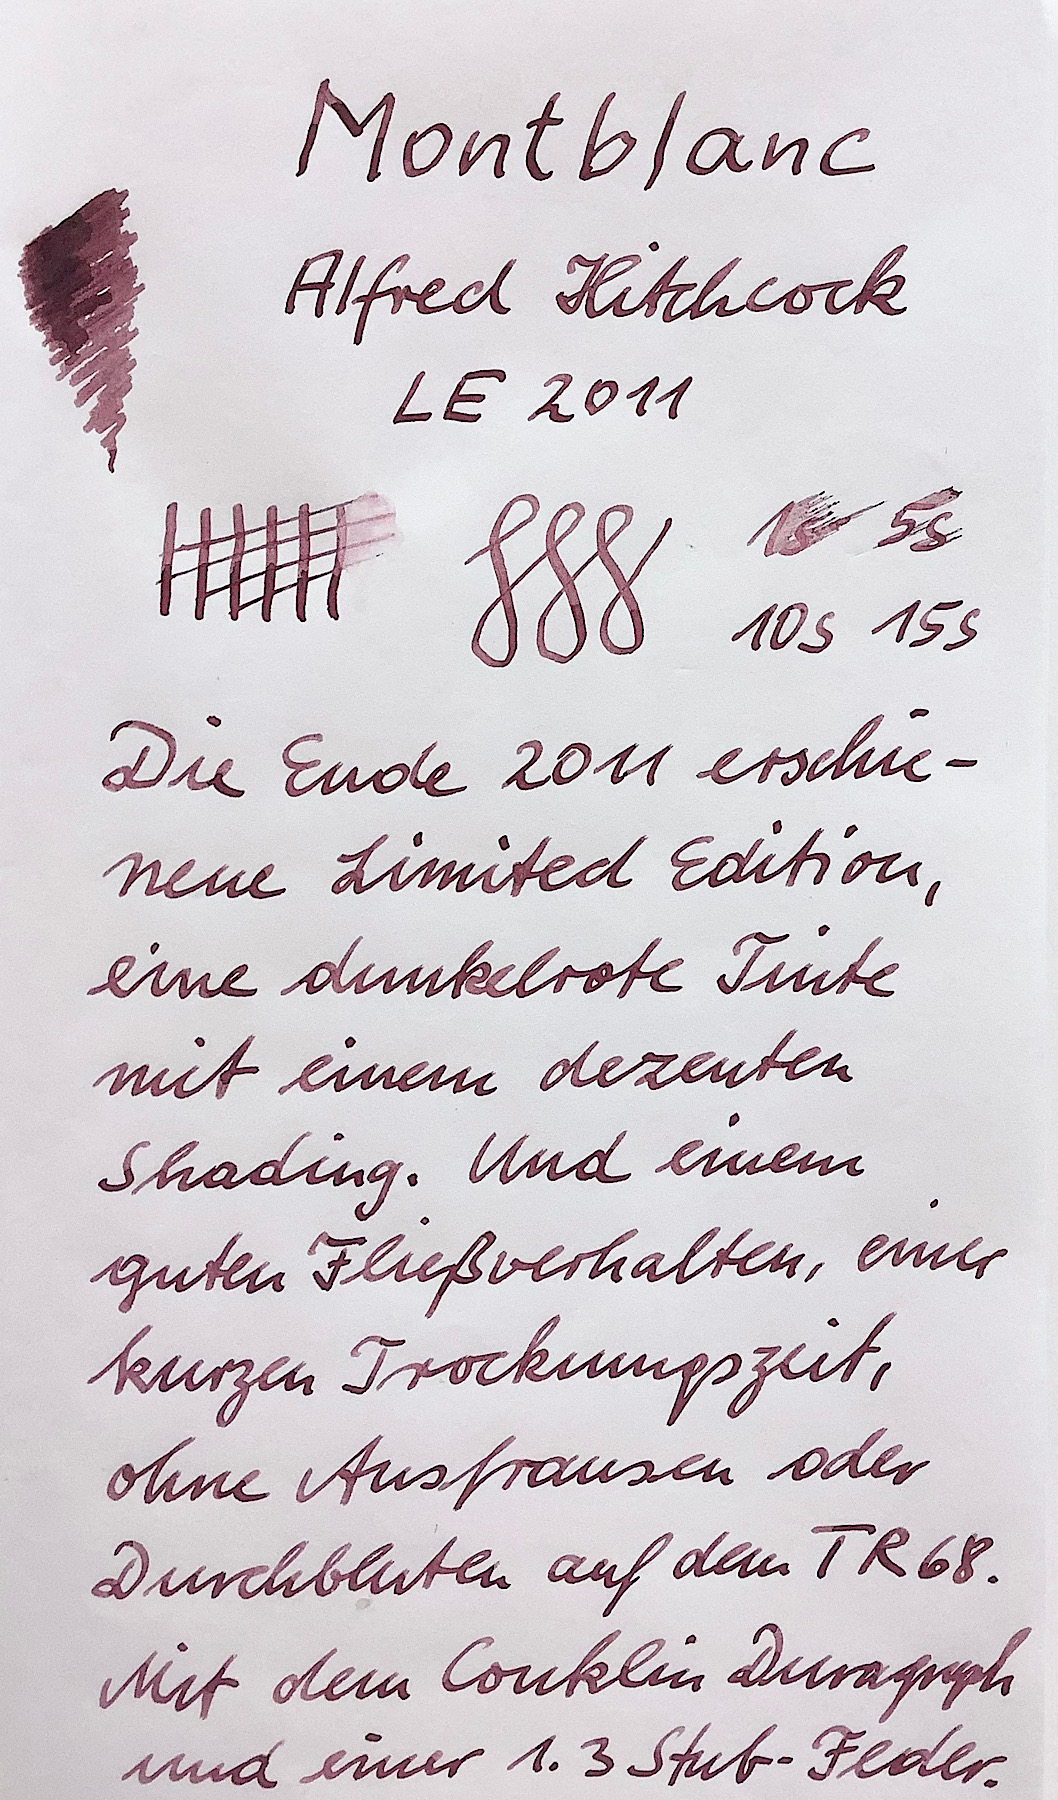 Montblanc
Alfred Hitchcock
LE 2011
1s 5s
10s 15s
Die Ende 2011 erschie-
nene Limited Edition,
eine dunkelrote Tinte
mit einem dezenten
Shading. Und einem
guten Fließverhalten, einer
kurzen Trocknungszeit,
ohne Ausfransen oder
Durchbluten auf dem TR68.
Mit dem Conklin Duragraph
und einer 1.3 Stub-Feder.